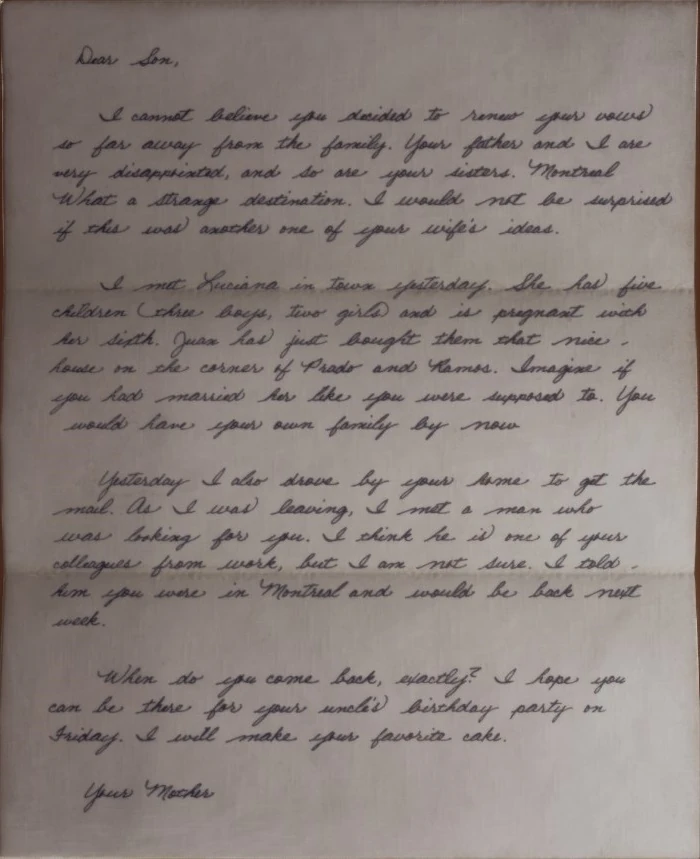 Dear Son,
I cannot believe you decided to renew your vows
so far away from the family. Your father and I are
very disappointed, and so are your sisters. Montreal
What a strange destination. I would not be surprised
if this was another one of your wife's ideas.
I met Luciana in town yesterday. She has five
children (three boys, two girls) and is pregnant with
her sixth. Juan has just bought them that nice
house on the corner of Prado and Ramos. Imagine if
you had married her like you were supposed to. You
would have your own family by now
Yesterday I also drove by your home to get the
mail. As I was leaving, I met a man who
was looking for you. I think he is one of your
colleagues from work, but I am not sure. I told
him you were in Montreal and would be back next
week.
When do you come back, exactly? I hope you
can be there for your uncle's birthday party on
Friday. I will make your favorite cake.
Your Mother